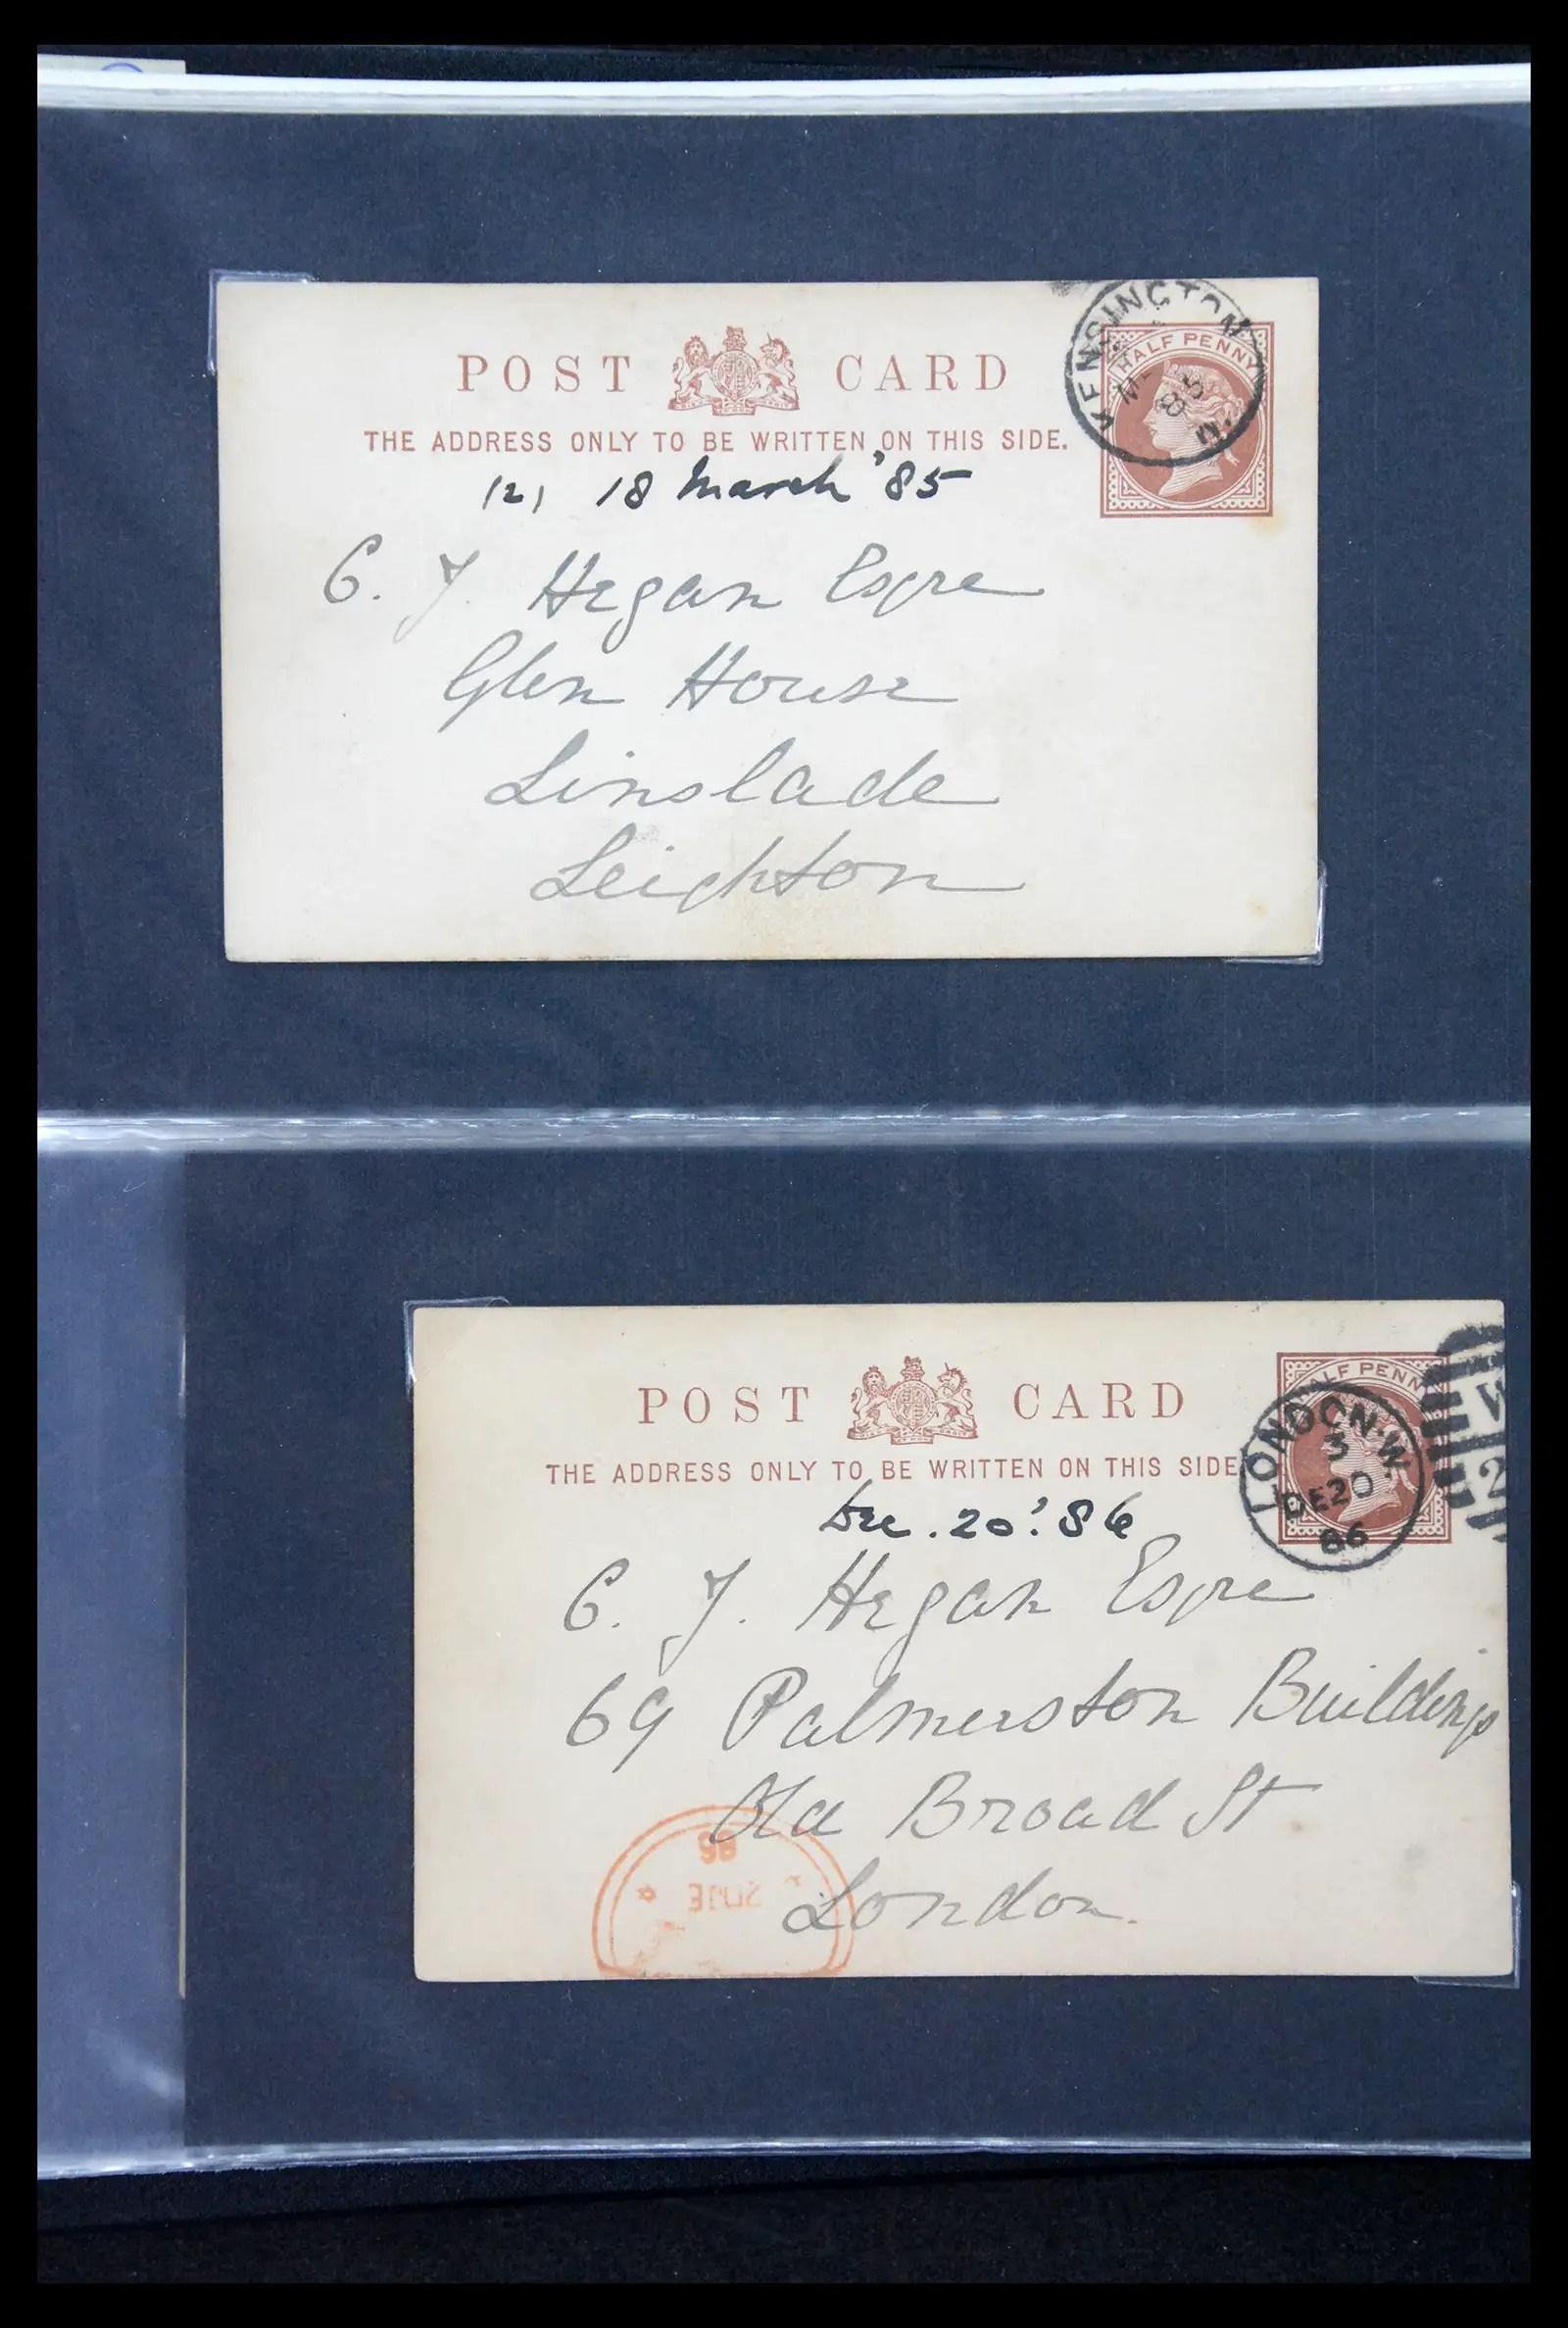 POST CARD
THE ADDRESS ONLY TO BE WRITTEN ON THIS SIDE.
KENSINGTON W.
85
HALF PENNY
121 18 March '85
C. J. Hegan Esqre
Glen House
Linslade
Leighton
POST CARD
THE ADDRESS ONLY TO BE WRITTEN ON THIS SIDE
HALF PENNY
LONDON.W
3
DE20
86
W
2
Dec. 20. '86
C. J. Hegan Esqre
69 Palmerston Buildings
Old Broad St
London.
86